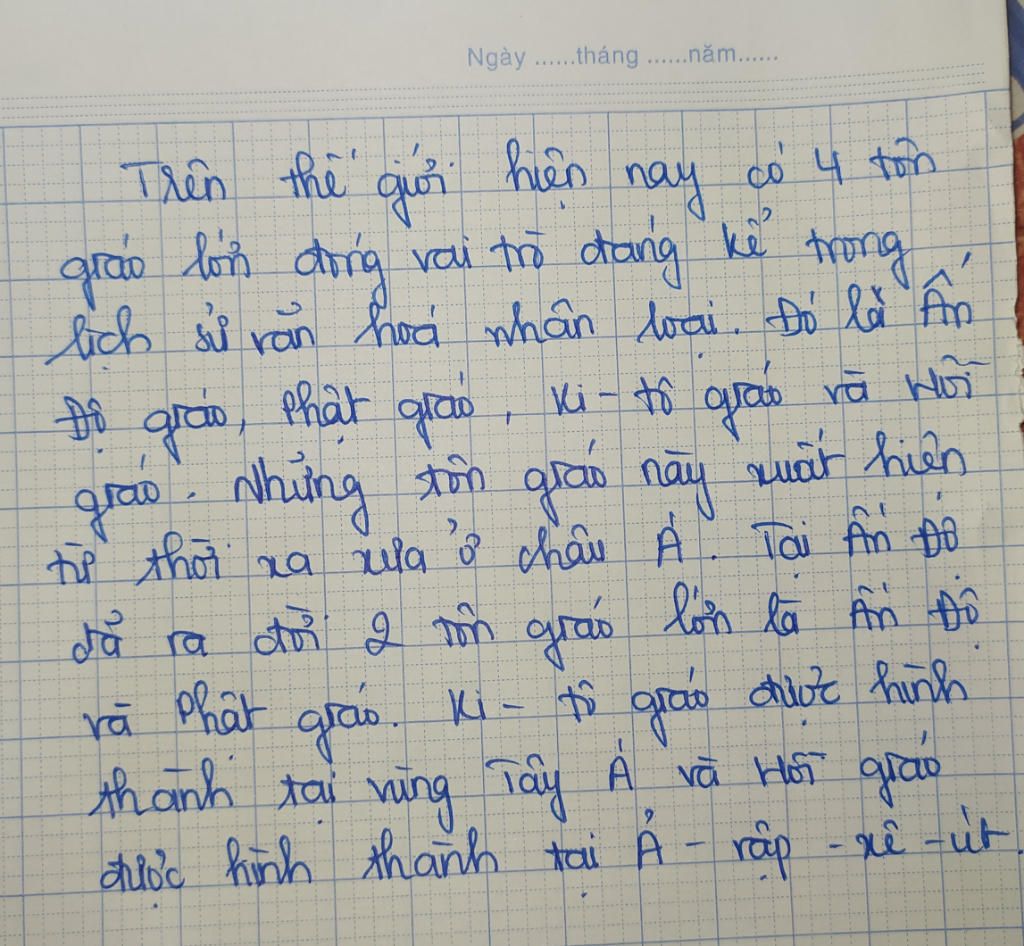 Ngày ......tháng ......năm......
Trên thế giới hiện nay có 4 tôn
giáo lớn đóng vai trò đáng kể trong
lịch sử văn hoá nhân loại. Đó là Ấn
Độ giáo, Phật giáo, Ki-tô giáo và Hồi
giáo. Những tôn giáo này xuất hiện
từ thời xa xưa ở châu Á. Tại Ấn Độ
đã ra đời 2 tôn giáo lớn là Ấn Độ
và Phật giáo. Ki-tô giáo được hình
thành tại vùng Tây Á và Hồi giáo
được hình thành tại Ả-rập-xê-út.